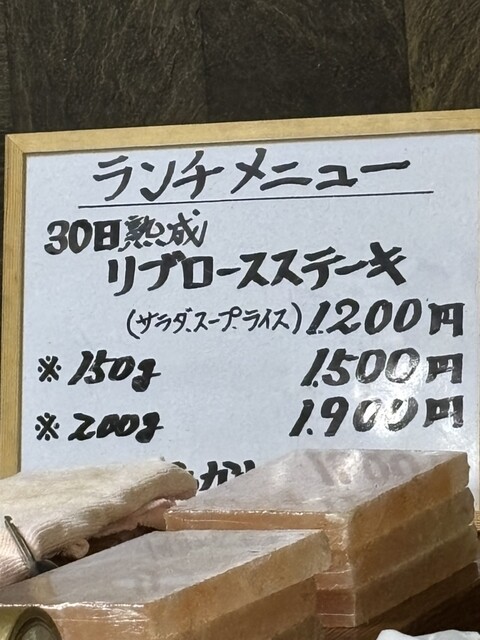 ランチメニュー
30日熟成
リブロースステーキ
(サラダ、スープ、ライス) 1.200円
※150g 1.500円
※200g 1.900円